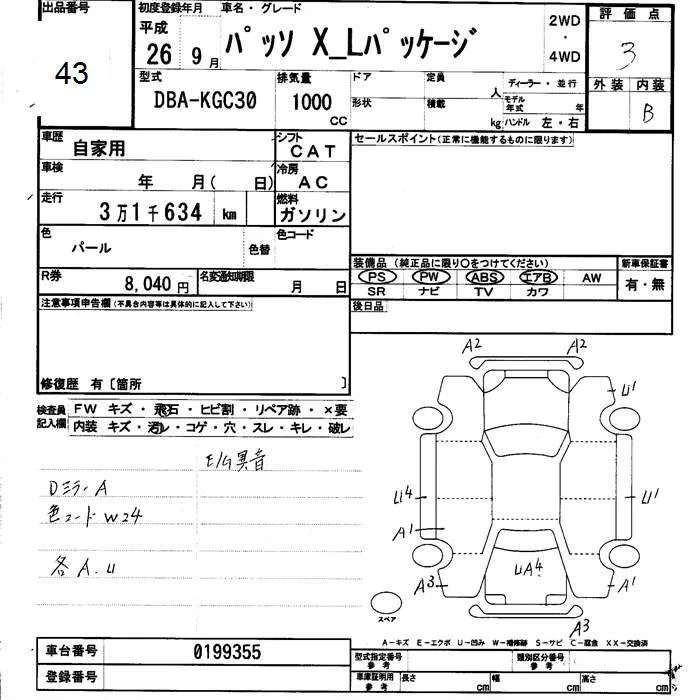 出品番号 43
初度登録年月 平成 26 9 月
車名・グレード パッソ X_Lパッケージ
2WD ・ 4WD
評価点 3
外装 内装 B
型式 DBA-KGC30
排気量 1000 CC
ドア 定員 人 ディーラー・並行
形状 積載 kg モデル年式 年
ハンドル 左・右
車歴 自家用
シフト CAT
セールスポイント(正常に機能するものに限ります)
車検 年 月( 日)
冷房 AC
走行 3万1千634 km
燃料 ガソリン
色 パール 色替
色コード
装備品 (純正品に限り○をつけてください)
新車保証書
PS PW ABS エアB AW
有・無
SR ナビ TV カワ
R券 8,040 円
名変通知期限 月 日
後日品
注意事項申告欄(不具合内容等は具体的に記入して下さい)
修復歴 有〔箇所 〕
検査員記入欄
FW キズ・飛石・ヒビ割・リペア跡・×要
内装 キズ・汚レ・コゲ・穴・スレ・キレ・破レ
E/G異音
Dミラー A
色コード W24
各 A.U
A2 A2
U1
U4 U1
A1
A3 UA4 A1
A3
スペア
A-キズ E-エクボ U-凹み W-補修跡 S-サビ C-腐食 XX-交換済
車台番号 0199355
登録番号
型式指定番号 参考
類別区分番号 参考
車庫証明用 参考 長さ cm 幅 cm 高さ cm